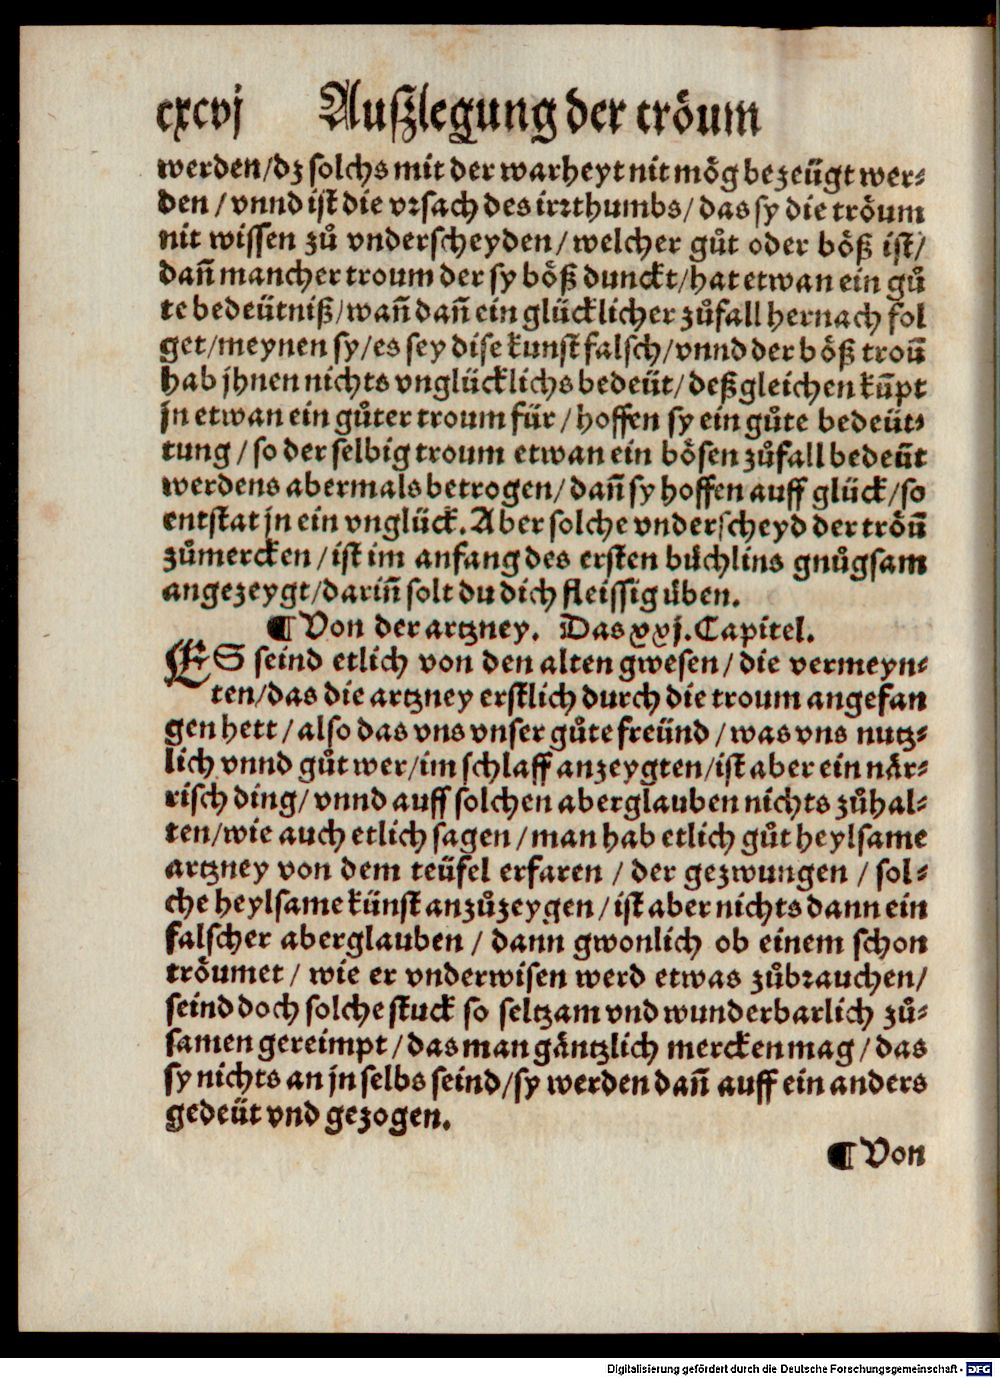 cxcvj Außlegung der tröum
werden/dz solchs mit der warheyt nit mög bezeügt wer⸗
den/vnnd ist die vꝛsach des irꝛthumbs/das sy die tröum
nit wissen zů vnderscheyden/welcher gůt oder böß ist/
dañ mancher troum der sy böß dunckt/hat etwan ein gů
te bedeütniß/wañ dañ ein glücklicher zůfall hernach fol
get/meynen sy/es sey dise kunst falsch/vnnd der böß troũ
hab jhnen nichts vnglücklichs bedeüt/deßgleichen kũpt
jn etwan ein gůter troum für/hoffen sy ein gůte bedeüt⸗
tung/so der selbig troum etwan ein bösen zůfall bedeüt
werdens abermals betrogen/dañ sy hoffen auff glück/so
entstat jn ein vnglück. Aber solche vnderscheyd der tröũ
zůmercken/ist im anfang des ersten bůchlins gnůgsam
angezeygt/dariñ solt du dich fleissig üben.
¶ Von der artzney. Das xxj. Capitel.
ES seind etlich von den alten gwesen/die vermeyn⸗
ten/das die artzney erstlich durch die troum angefan
gen hett/also das vns vnser gůte freünd/was vns nutz⸗
lich vnnd gůt wer/im schlaff anzeygten/ist aber ein när⸗
risch ding/vnnd auff solchen aberglauben nichts zůhal⸗
ten/wie auch etlich sagen/man hab etlich gůt heylsame
artzney von dem teüfel erfaren/der gezwungen/sol⸗
che heylsame künst anzůzeygen/ist aber nichts dann ein
falscher aberglauben/dann gwonlich ob einem schon
tröumet/wie er vnderwisen werd etwas zůbꝛauchen/
seind doch solche stuck so seltzam vnd wunderbarlich zů⸗
samen gereimpt/das man gäntzlich mercken mag/das
sy nichts an jn selbs seind/sy werden dañ auff ein anders
gedeüt vnd gezogen.
¶ Von
Digitalisierung gefördert durch die Deutsche Forschungsgemeinschaft - DFG